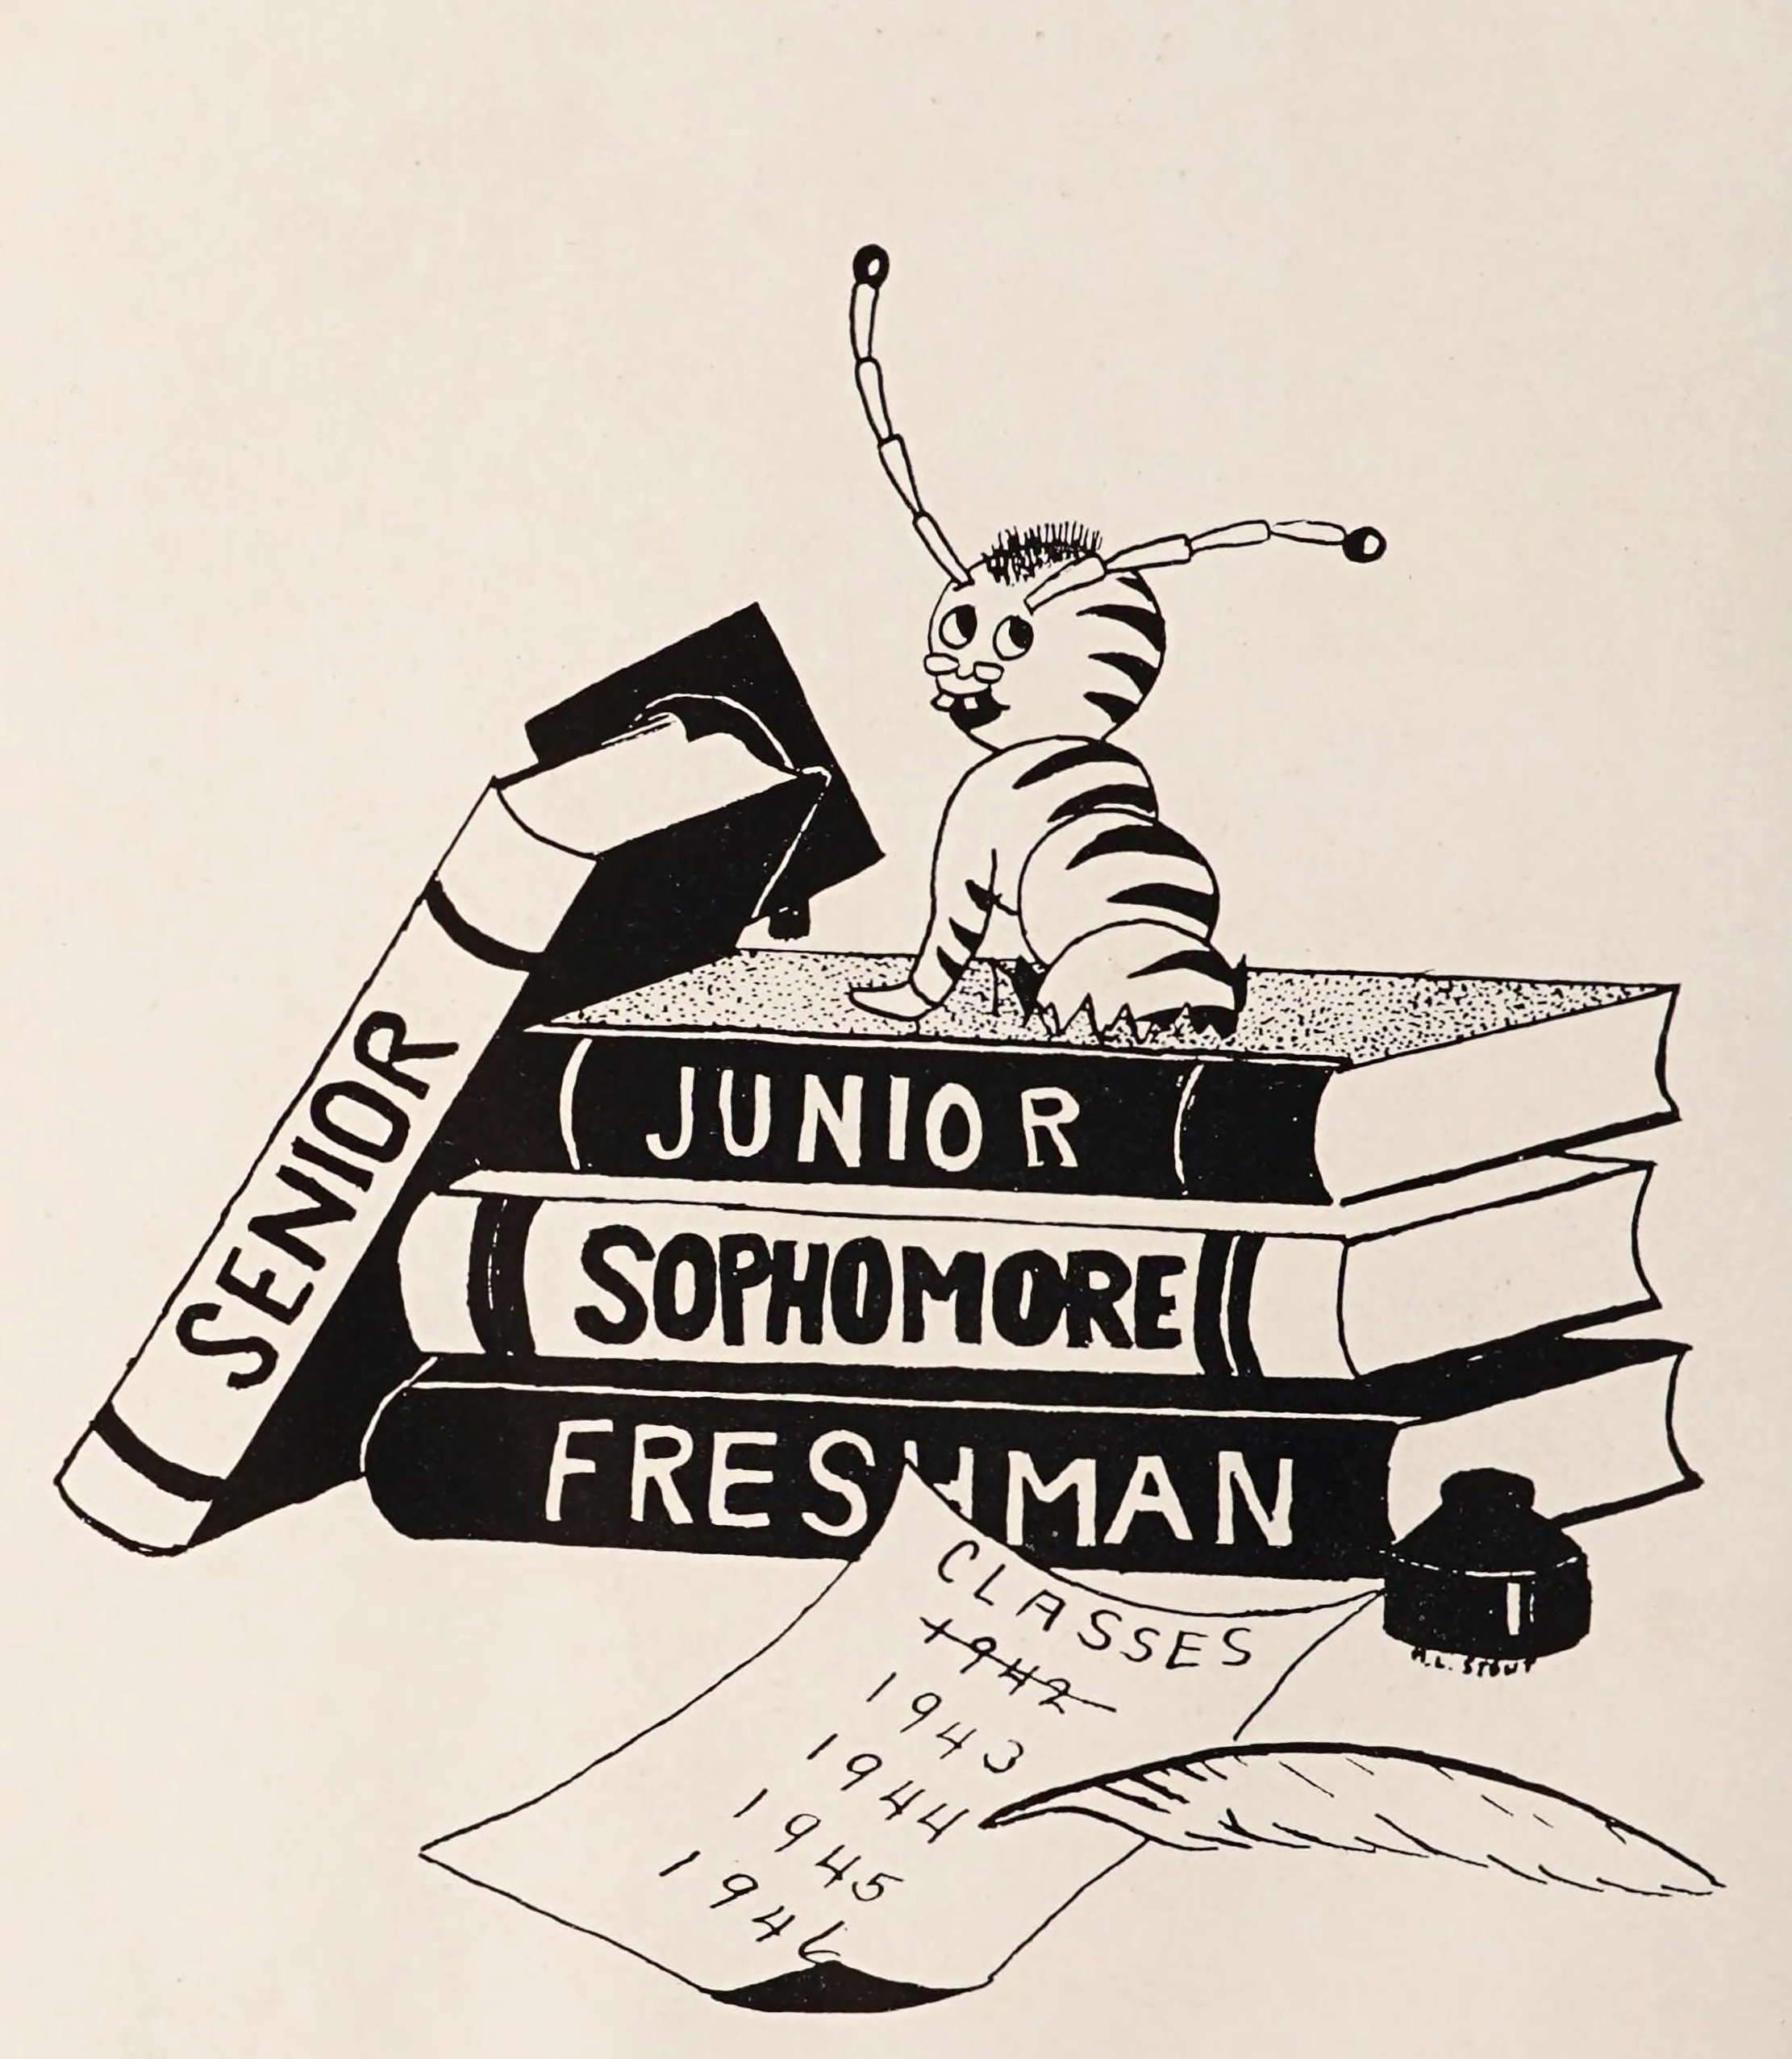 SENIOR
JUNIOR
SOPHOMORE
FRESHMAN
CLASSES
1942
1943
1944
1945
1946
H.L. STOUT